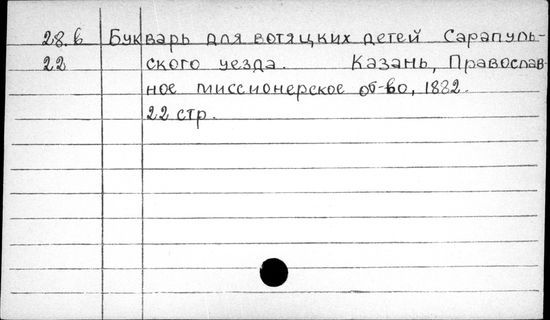 28.в Букварь для вотяцких детей Сарапуль-
22 ского уезда. Казань, Православ-
ное миссионерское об-во, 1882.
22 стр.